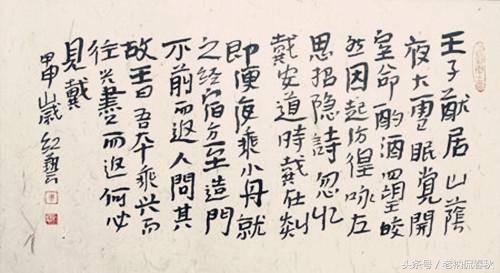 王子猷居山蔭
夜大雪眠覺開
室命酌酒四望皎
然因起彷徨咏左
思招隐詩忽忆
戴安道時戴在剡
即便夜乘小舟就
之经宿方至造門
不前而返人問其
故王曰吾本乘兴而
往兴盡而返何必
見戴
甲申歲
头条号／老衲侃春秋